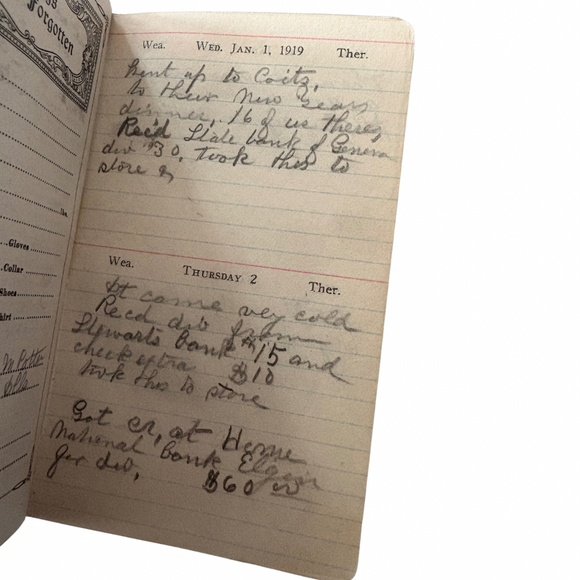 Forgotten
lbs.
Gloves
Collar
Shoes
Wea. WED. JAN. 1, 1919 Ther.
Went up to Coitz,
to their New Years
dinner, 16 of us there,
Rec'd State bank of Geneva
div $30, took this to
store
Wea. THURSDAY 2 Ther.
It came very cold
Recd div from
Stewarts bank $15 and
check extra $10
took this to store
Got cr, at Home
National bank Elgin
for div, $60